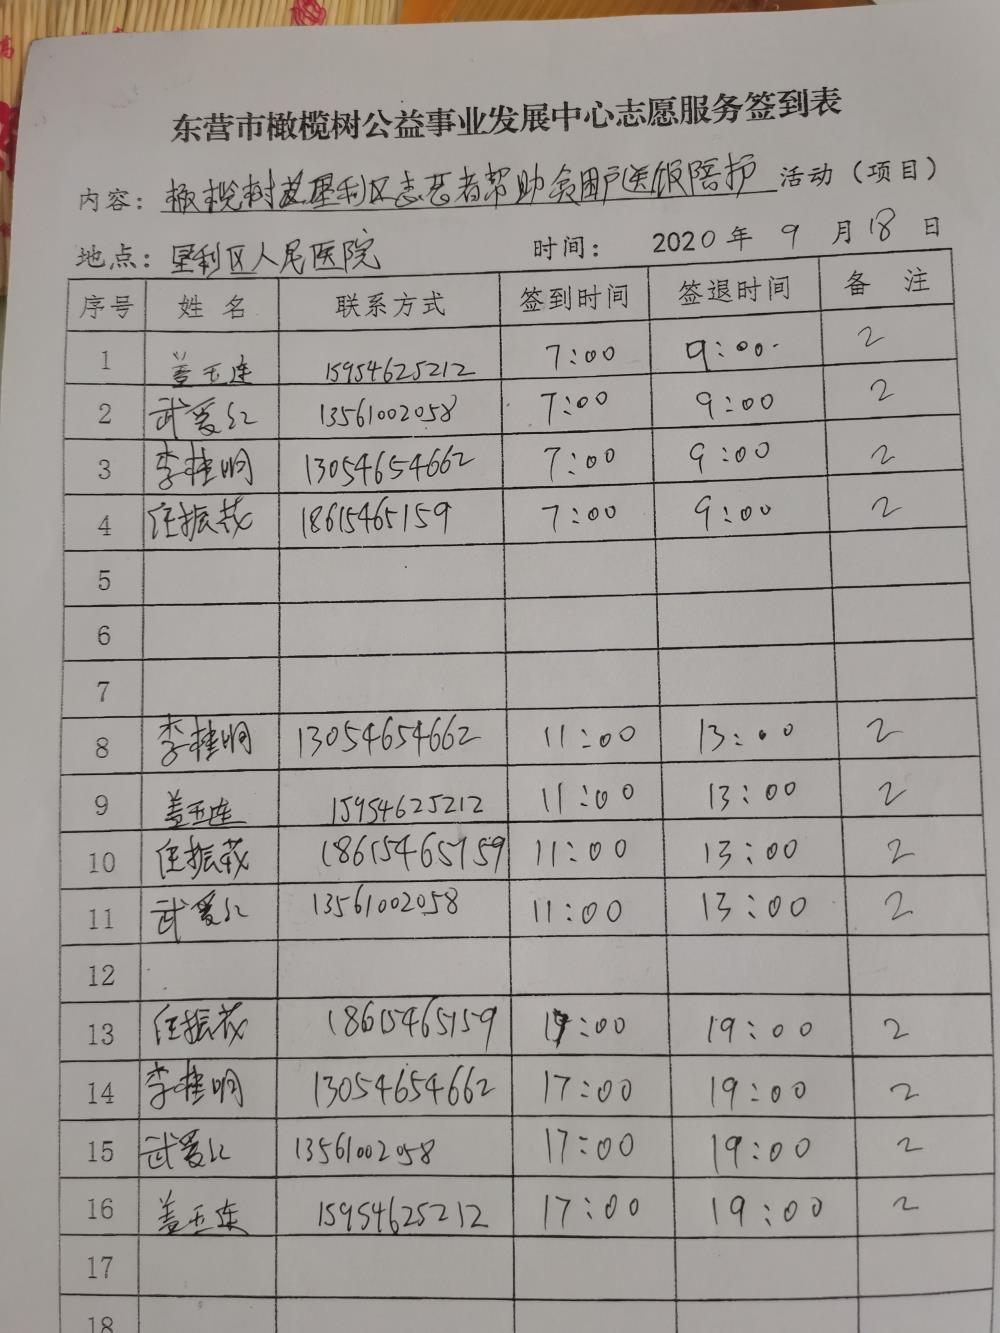 东营市橄榄树公益事业发展中心志愿服务签到表
内容：橄榄树垦利区志愿者帮助贫困户医院陪护 活动（项目）
地点：垦利区人民医院 时间： 2020年 9 月18日
序号 姓名 联系方式 签到时间 签退时间 备 注
1 盖玉连 15954625212 7:00 9:00 2
2 武爱红 13561002058 7:00 9:00 2
3 李桂明 13054654662 7:00 9:00 2
4 任振茂 18615465159 7:00 9:00 2
5
6
7
8 李桂明 13054654662 11:00 13:00 2
9 盖玉连 15954625212 11:00 13:00 2
10 任振茂 18615465159 11:00 13:00 2
11 武爱红 13561002058 11:00 13:00 2
12
13 任振茂 18615465159 17:00 19:00 2
14 李桂明 13054654662 17:00 19:00 2
15 武爱红 13561002058 17:00 19:00 2
16 盖玉连 15954625212 17:00 19:00 2
17
18